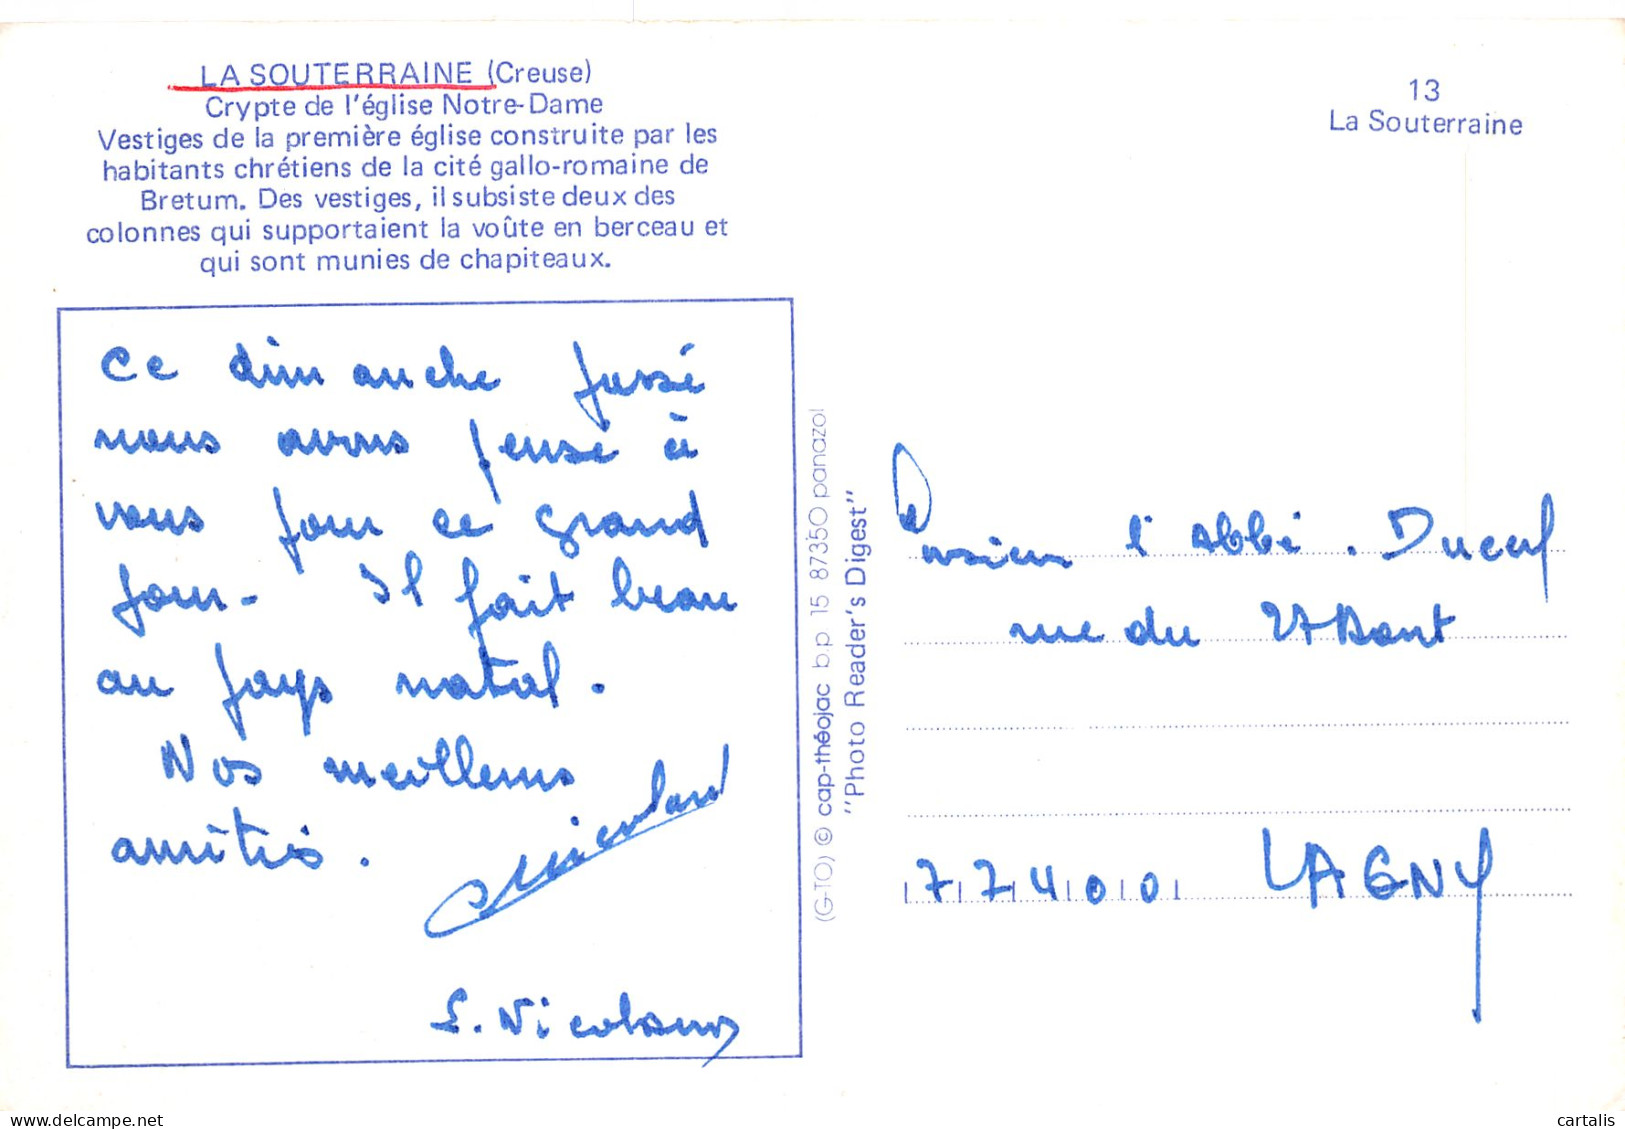 LA SOUTERRAINE (Creuse)
Crypte de l'église Notre-Dame
Vestiges de la première église construite par les
habitants chrétiens de la cité gallo-romaine de
Bretum. Des vestiges, il subsiste deux des
colonnes qui supportaient la voûte en berceau et
qui sont munies de chapiteaux.
13
La Souterraine
Ce dimanche passé
nous avons pensé à
vous pour ce grand
jour. Il fait beau
au pays natal.
Nos meilleures
amitiés.
(G-TO) © cap-théojac b.p 15 87350 panazol
"Photo Reader's Digest"
l'Abbé
rue du 27 Aout
77400 LAGNY